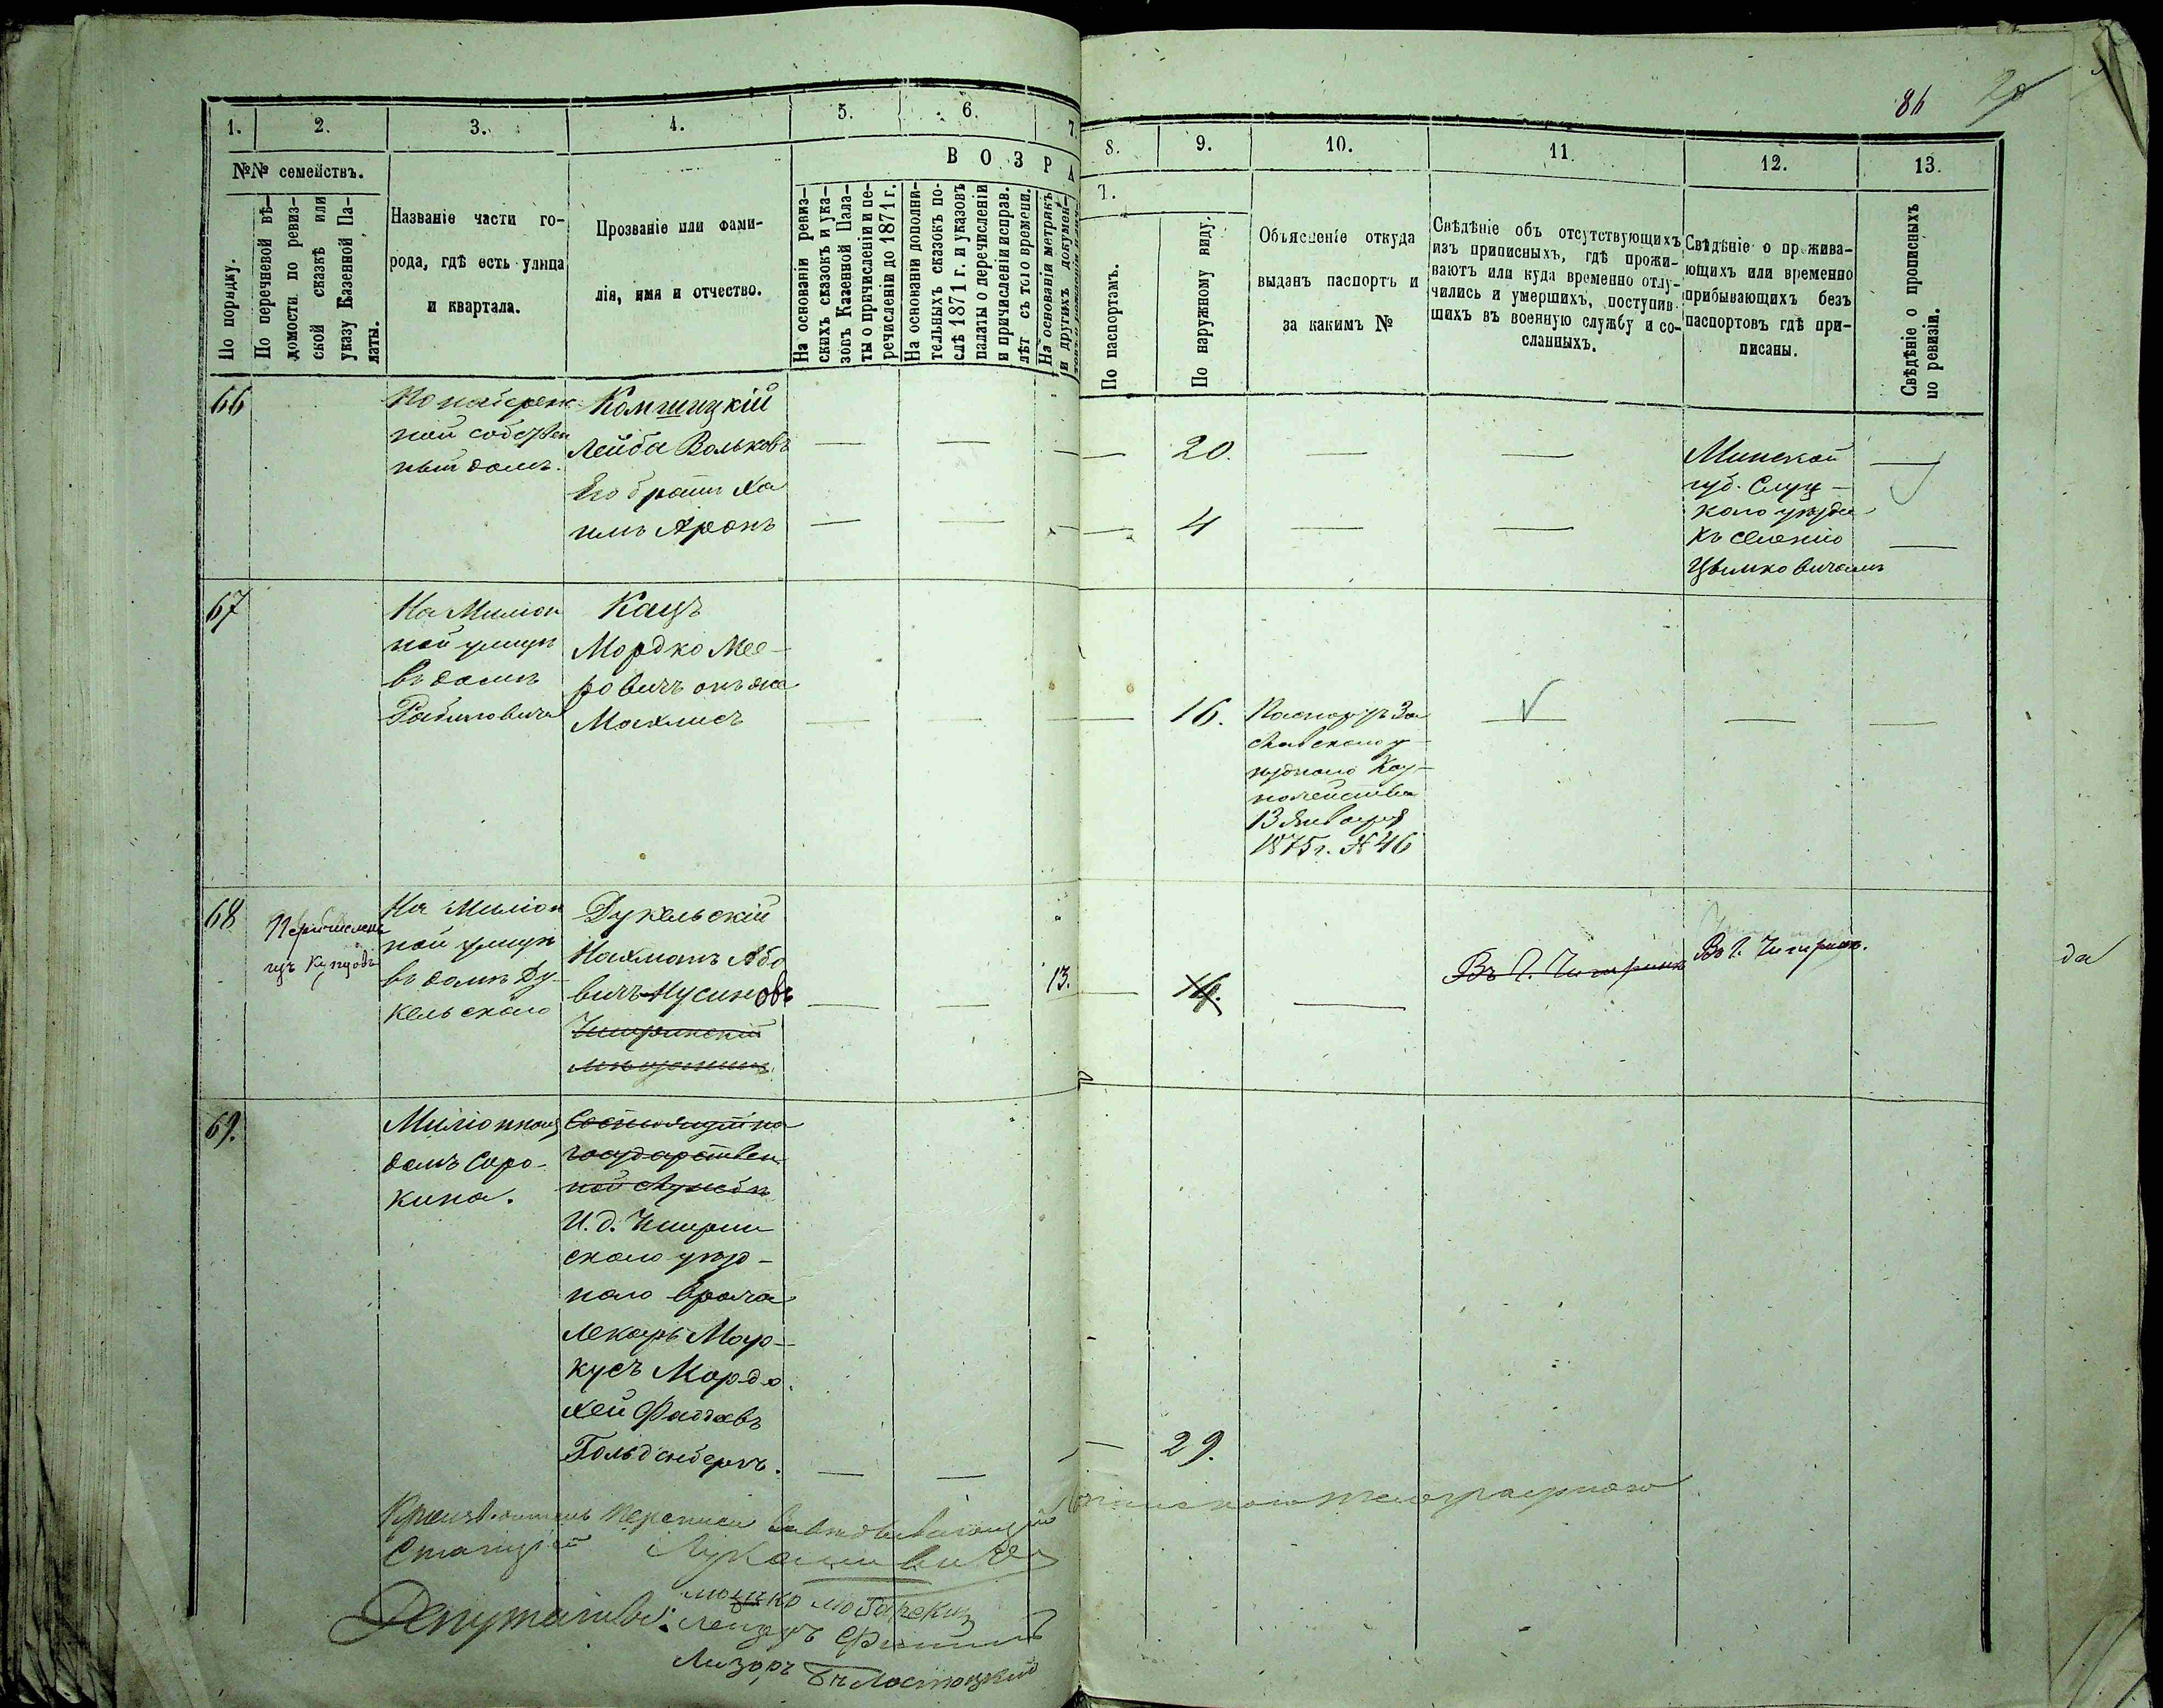 86
20
1.
2.
3.
4.
5.
6.
7.
8.
9.
10.
11.
12.
13.
№№ семействъ.
В О З Р А
По порядку.
По перечневой вѣ-
домости по ревиз-
ской сказкѣ или
указу Казенной Па-
латы.
Названіе части го-
рода, гдѣ есть улица
и квартала.
Прозваніе или фами-
лія, имя и отчество.
На основаніи ревиз-
скихъ сказокъ и ука-
зовъ Казенной Пала-
ты о причисленіи и пе-
речисленіи до 1871 г.
На основаніи дополни-
тельныхъ сказокъ по-
слѣ 1871 г. и указовъ
палаты о перечисленіи
и причисленіи исправ.
лѣт съ того времени.
На основаніи метрикъ
и другихъ докумен-
По паспортамъ.
По наружному виду.
Объясненіе откуда
выданъ паспортъ и
за какимъ №
Свѣдѣніе объ отсутствующихъ
изъ приписныхъ, гдѣ прожи-
ваютъ или куда временно отлу-
чились и умершихъ, поступив-
шихъ въ военную службу и со-
сланныхъ.
Свѣдѣніе о прожива-
ющихъ или временно
прибывающихъ безъ
паспортовъ гдѣ при-
писаны.
Свѣдѣніе о прописныхъ
по ревизіи.
66
По набереж
ной собствен
ный домъ.
Комшицкій
Лейба Вольковъ
Его братъ Ха
имъ Аронъ
20.
4
Минской
губ. Слуц-
кого уѣзда
къ селенію
67
На Милiон
ной улицѣ
въ домѣ
Рабиновича
Кацъ
Мордко Мее-
ровичъ онъ же
Махлисъ
16.
Паспортъ За
славскаго у-
ѣзднаго Каз-
начейства
13 Января
1875 г. № 46
68
Перечисленъ
изъ Купцовъ
На Миліон
ной улицѣ
въ домѣ Ду-
кельскаго
Дукельскій
Нахманъ Або
вичъ-Нусиновъ
Чигиринскій
мѣщанинъ
13.
14.
Въ г. Чигиринѣ
Въ г. Чигиринѣ.
да
69.
Миліонная
домъ Соро-
кина.
Состоящій на
государствен
ной службѣ
И. д. Чигирин
скаго уѣзд-
наго врача
Лекарь Мар-
кусъ Мордо
хей Фаддѣевъ
Гольденбергъ.
29.
телеграфною
Станціей
Депутаты:
Мошко
Лейзеръ
Лизоръ Бѣлостоцкій